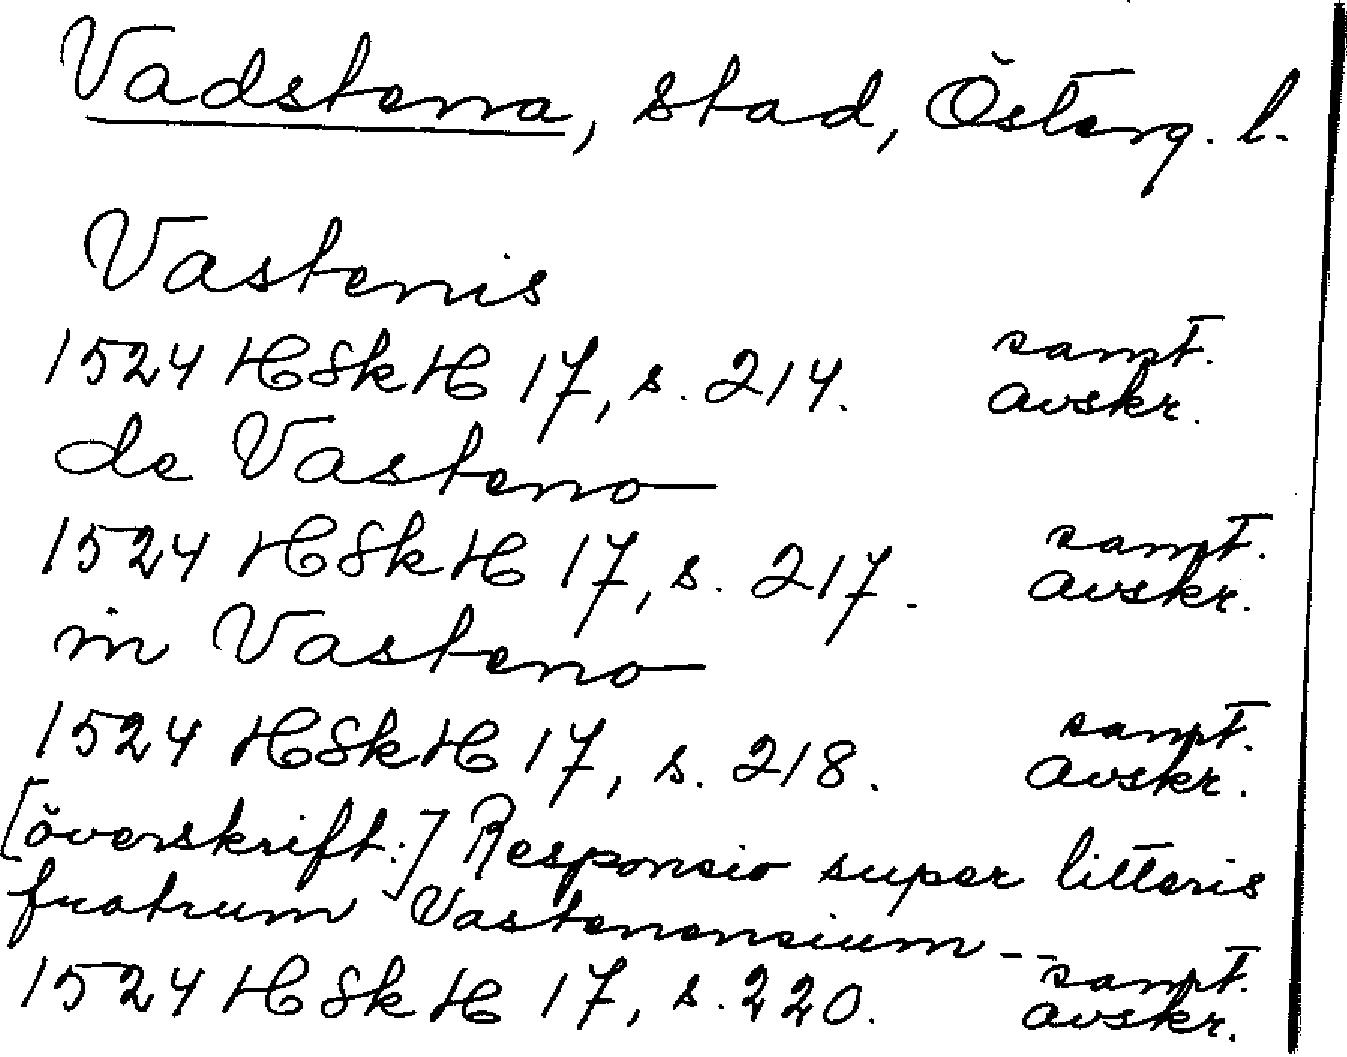 Vadstena, stad, Österg. l.
Vastenis
1524 HSkH 17, s. 214. samt. avskr.
de Vasteno
1524 HSkH 17, s. 217. samt. avskr.
in Vasteno
1524 HSkH 17, s. 218. samt. avskr.
[överskrift:] Responsio super litteris
fratrum Vastenensium --
1524 HSkH 17, s. 220. samt. avskr.